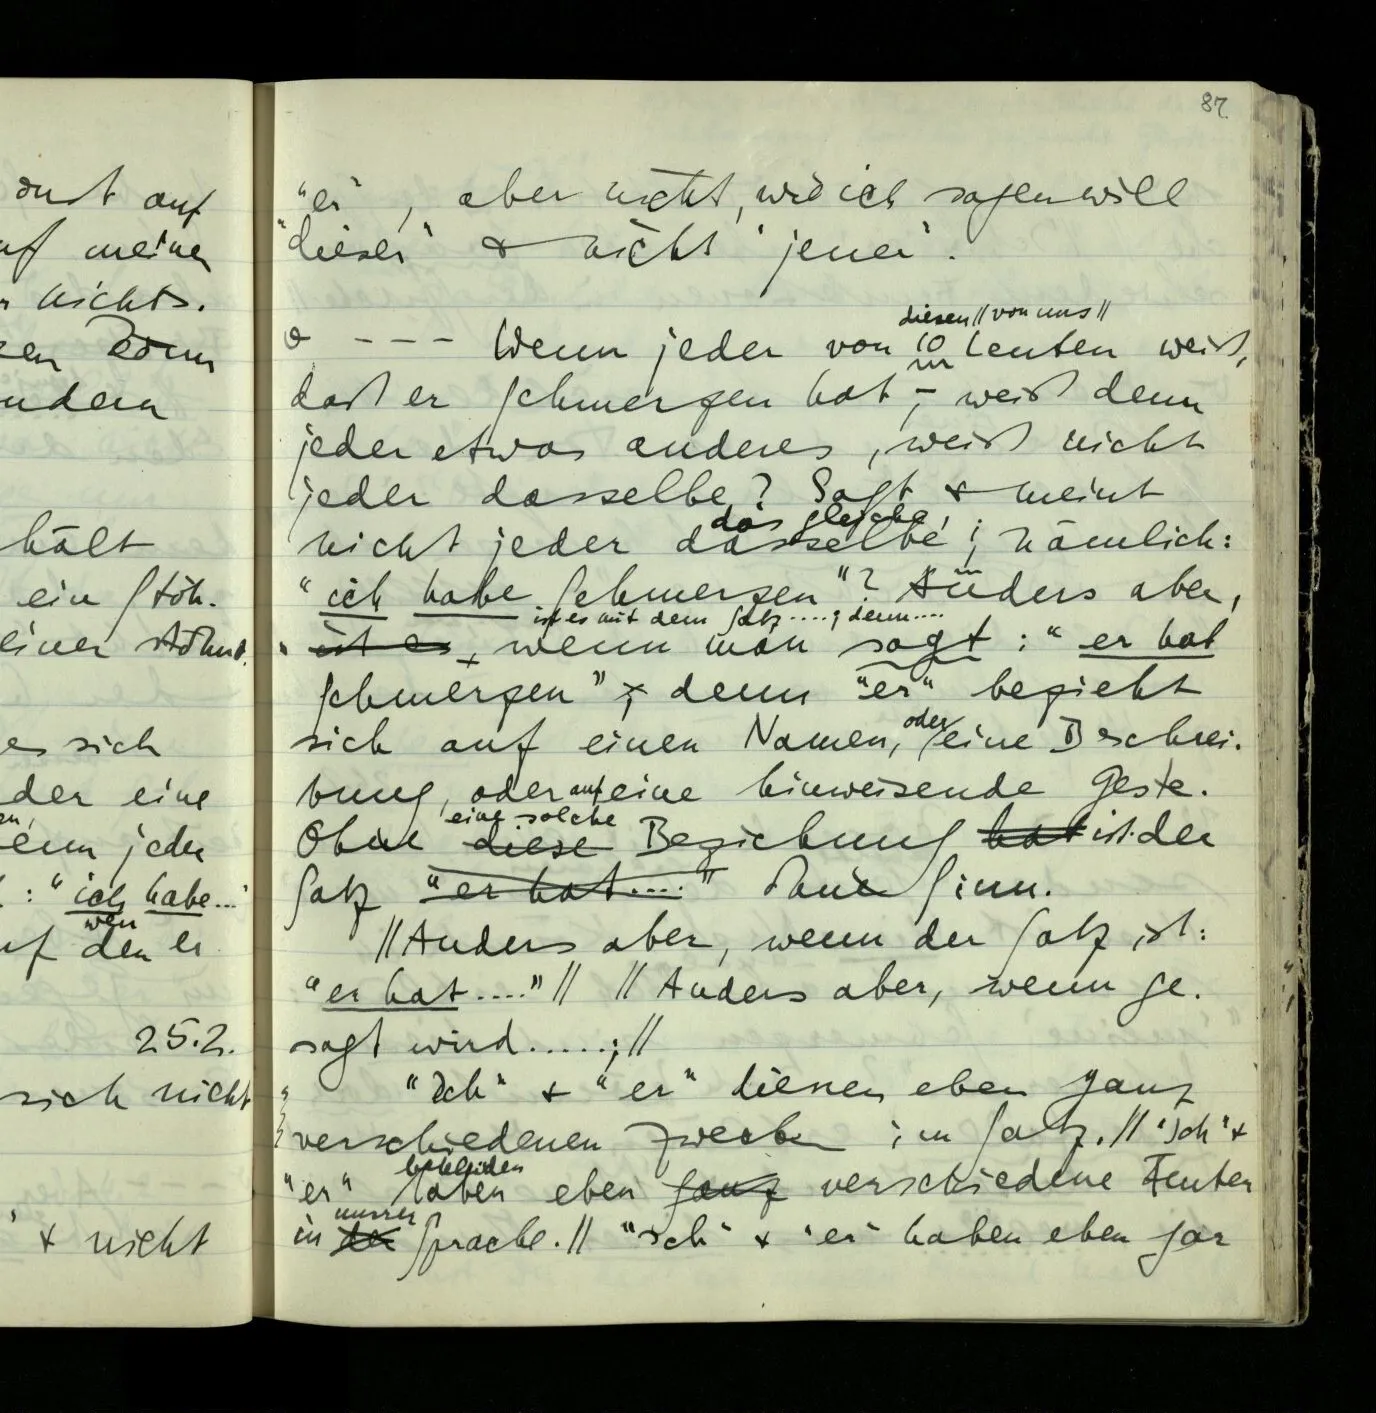 87.
onst auf
uf meinen
nichts.
zen
ndern
hält
ein Stöh-
einer stöhnt.
es sich
der eine
enn jeder
: "ich habe..."
wen
uf den er
25.2.
sich nicht
& nicht
"er", aber nicht, wie ich sagen will
'dieser' & nicht 'jener'.
diesen // von uns //
∅ --- Wenn jeder von 10 Leuten weiß,
daß er Schmerzen hat, – weiß denn
jeder etwas anderes, weiß nicht
jeder dasselbe? Sagt & meint
das gleiche,
nicht jeder dasselbe; nämlich:
"ich habe Schmerzen"? Anders aber,
ist es mit dem Satz....; denn....
ist es, wenn man sagt: "er hat
Schmerzen"; denn "er" bezieht
sich auf einen Namen, oder eine Beschrei-
bung, oder auf eine hinweisende Geste.
eine solche
Ohne diese Beziehung hat ist der
Satz "er hat...." ohne Sinn.
//Anders aber, wenn der Satz ist:
"er hat...."// //Anders aber, wenn ge-
sagt wird.....;//
"Ich" & "er" dienen eben ganz
verschiedenen Zwecken im Satz. // 'Ich' &
bekleiden
"er" haben eben ganz verschiedene Ämter
unsrer
in der Sprache. // "Ich" & 'er' haben eben gar